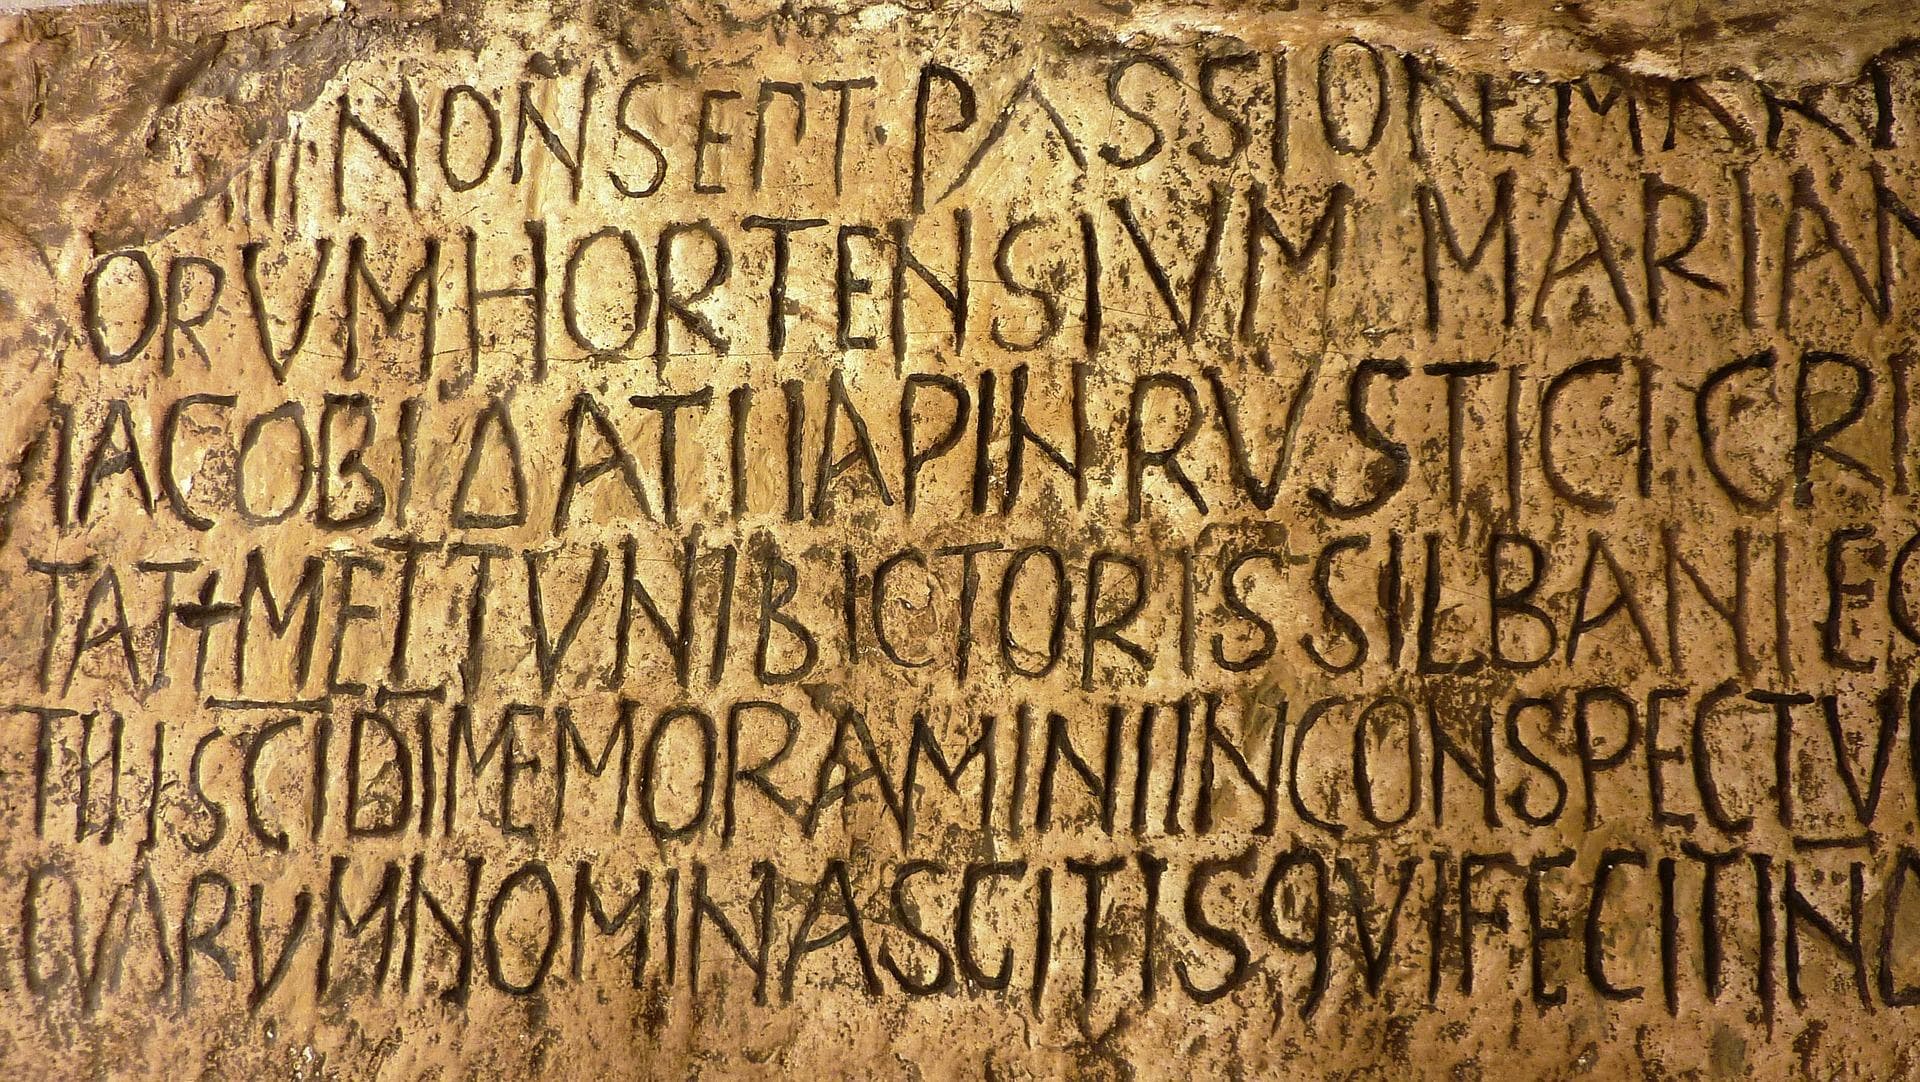 III NON SEPT · PASSIONE MART
ORVM HORTENSIVM MARIAN
IACOBI DATI IAPIN RVSTICI CRI
TAT + METTVNI BICTORIS SILBANI EG
TII SCI DI MEMORAMINI IN CONSPECTV
QVARVM NOMINA SCIT IS QVI FECIT IND